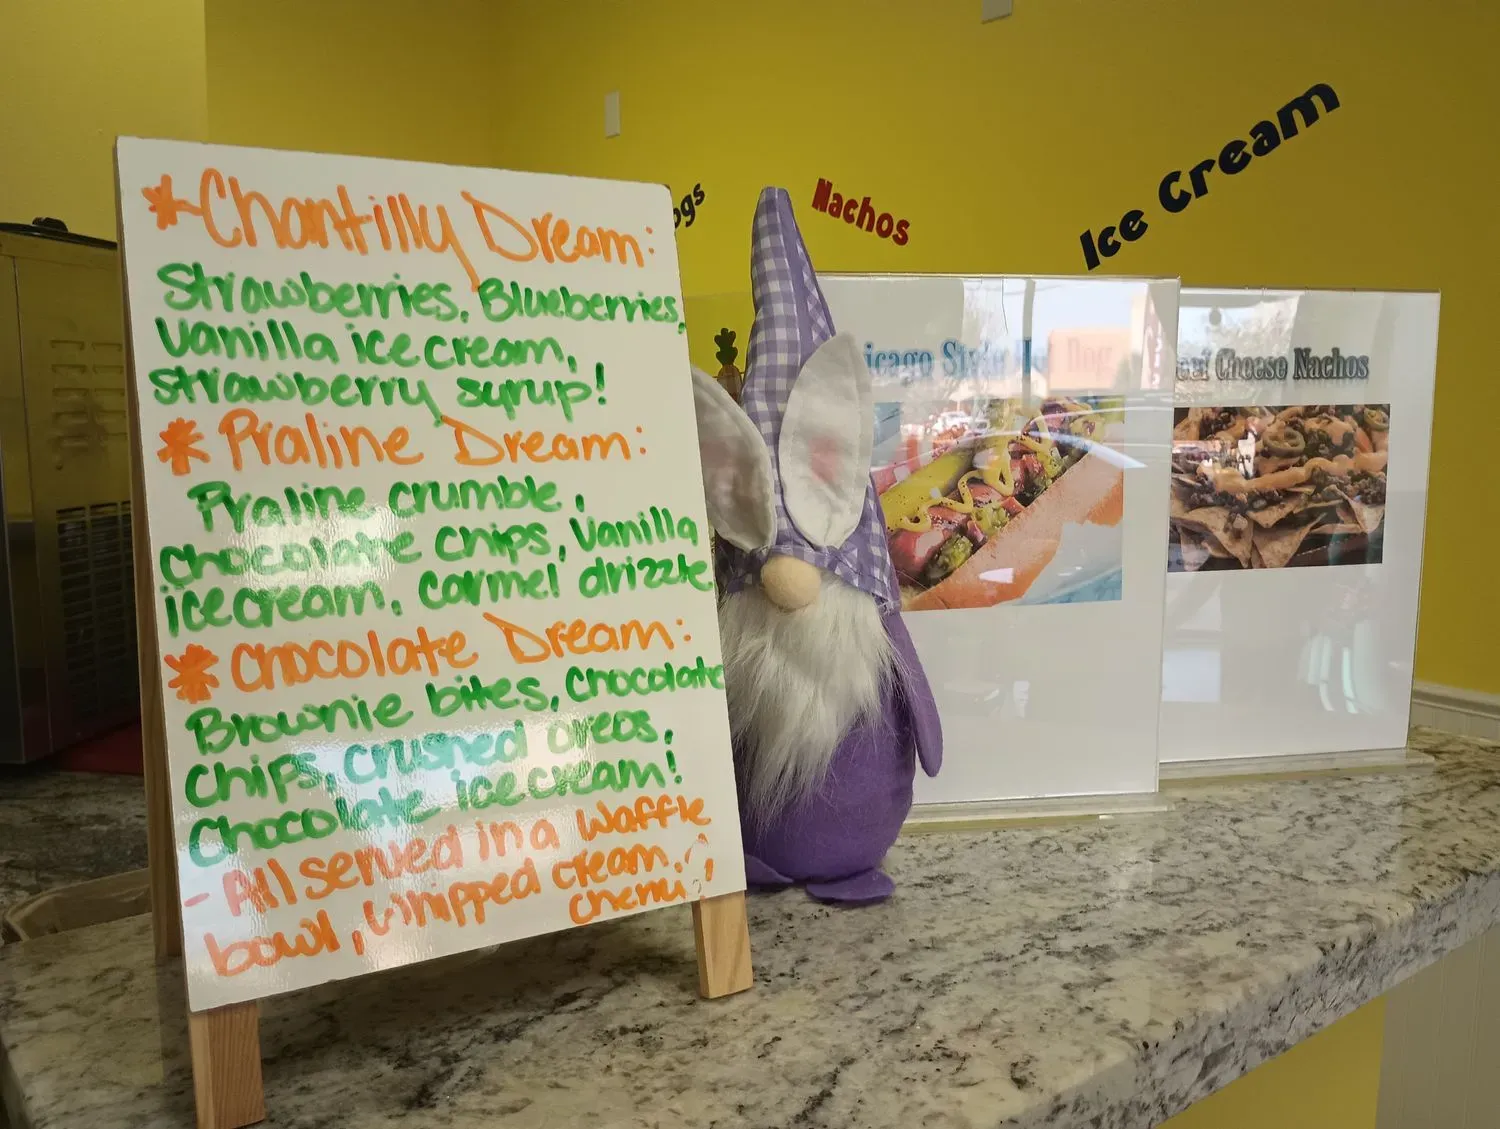 *Chantilly Dream:
Strawberries, Blueberries,
Vanilla ice cream,
strawberry syrup!
* Praline Dream:
Praline crumble,
chocolate chips, Vanilla
ice cream, carmel drizzle
* Chocolate Dream:
Brownie bites, chocolate
chips, crushed oreos,
Chocolate ice cream!
- All served in a waffle
bowl, whipped cream,
cherry!
ogs
Nachos
Ice Cream
icago Style Hot Dog
Cheese Nachos